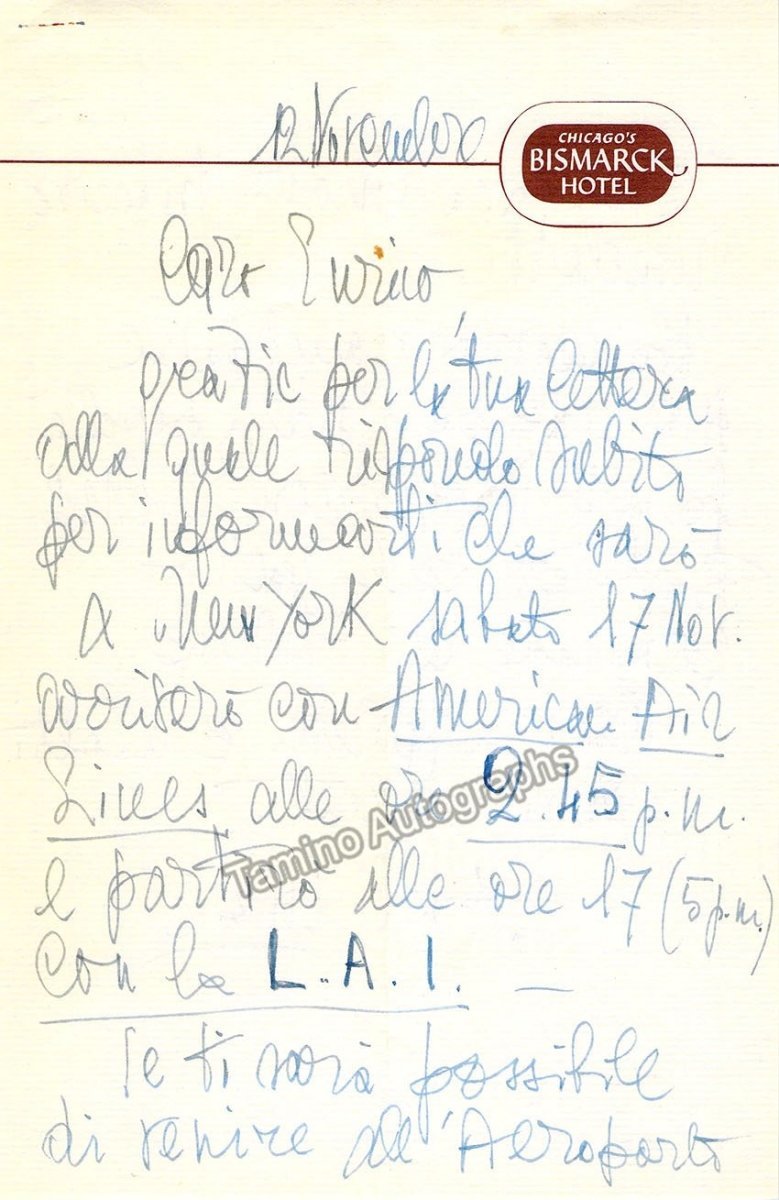 12 Novembre
CHICAGO'S
BISMARCK
HOTEL
Caro
grazie per la tua lettera
alla quale rispondo subito
per informarti che sarò
a New York sabato 17 Nov.
con American Air
Lines alle ore 2.45 p.m.
e partirò alle ore 17 (5 p.m.)
con la L.A.I. —
Se ti sarà possibile
di venire all'Aeroporto
Tamino Autographs